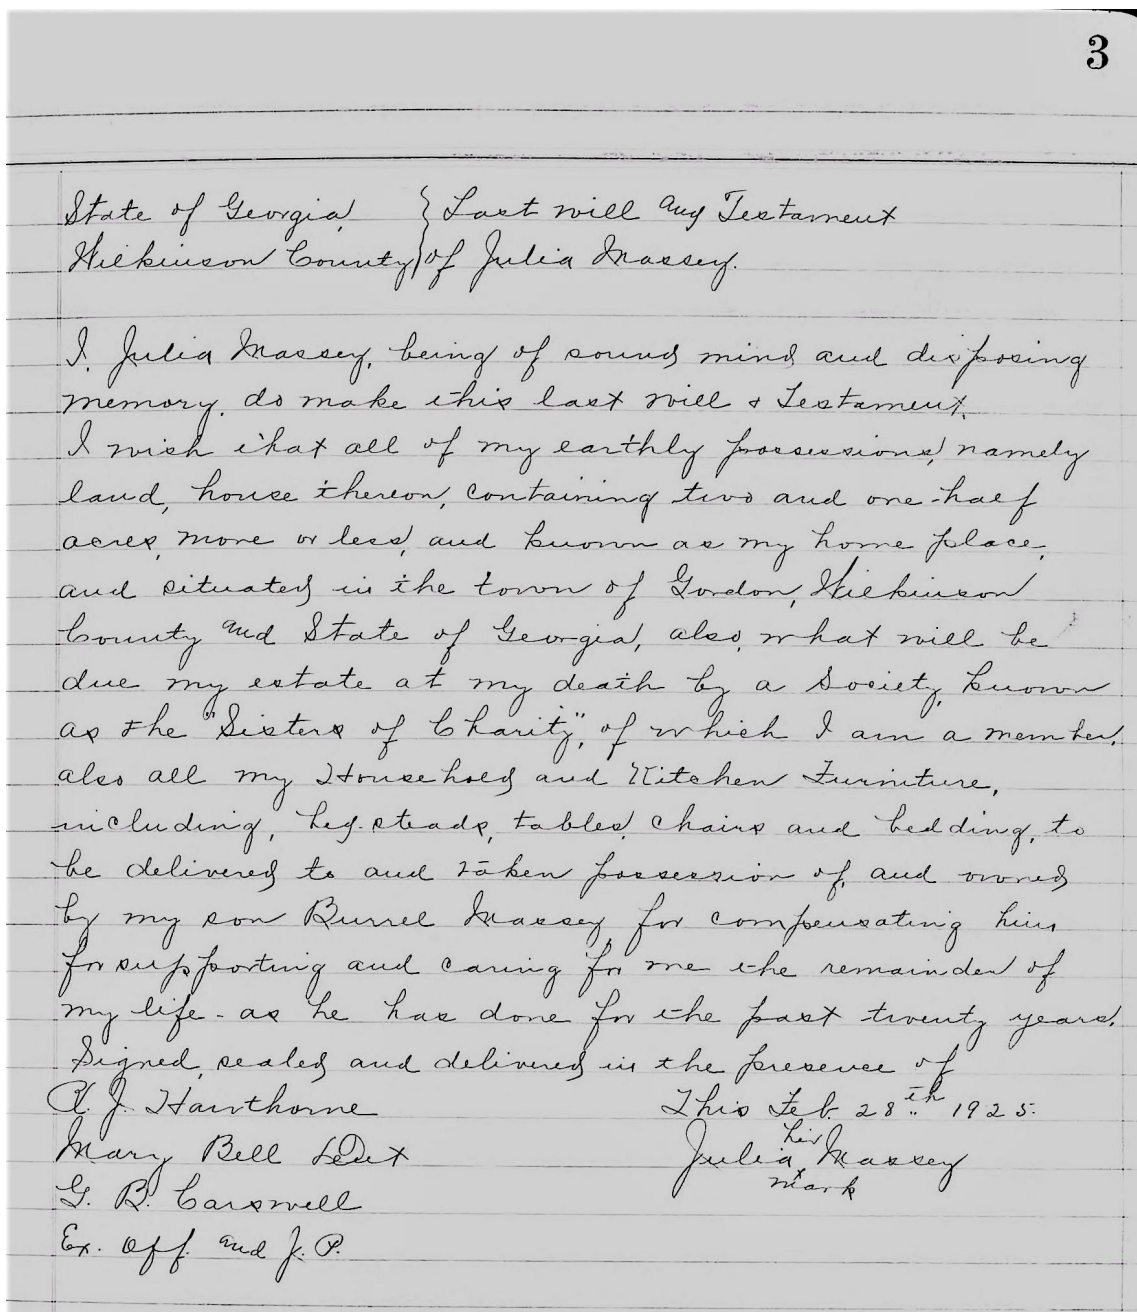 3
State of Georgia, } Last will and Testament
Wilkinson County } of Julia Massey.
I, Julia Massey, being of sound mind and disposing
memory, do make this last will & Testament.
I wish that all of my earthly possessions, namely
land, house thereon, containing two and one-half
acres, more or less, and known as my home place,
and situated in the town of Gordon, Wilkinson
County and State of Georgia, also, what will be
due my estate at my death by a Society, known
as the "Sisters of Charity", of which I am a member,
also all my Household and Kitchen Furniture,
including, bed-steads, tables, chairs and bedding, to
be delivered to and taken possession of, and owned
by my son Burrel Massey, for compensating him
for supporting and caring for me the remainder of
my life - as he has done for the past twenty years.
Signed, sealed and delivered in the presence of
J. Hawthorne This Feb. 28th 1925.
Mary Bell her
G. B. Carswell Julia x Massey
Ex. Off. and J. P. mark